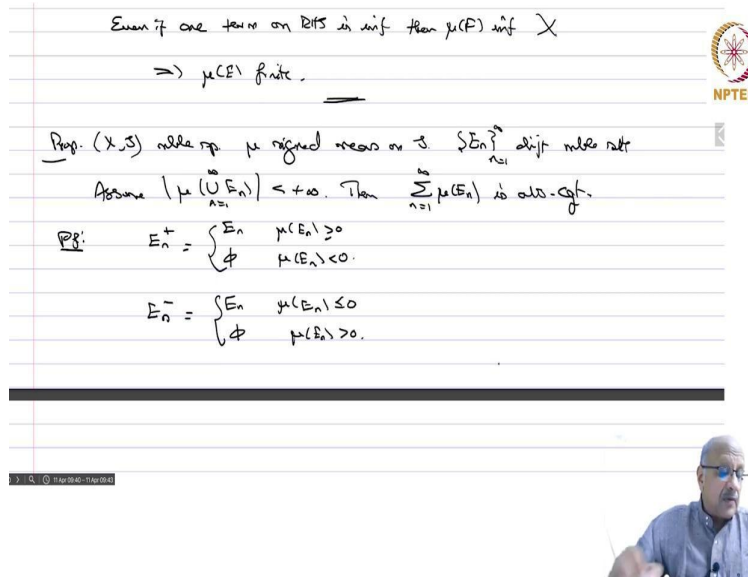 Even if one term on RHS is inf then μ(F) inf X
=> μ(E) finite.
NPTEL
Prop. (X, S) mble sp. μ signed meas on S. {En}_{n=1}^∞ disjt mble sets
Assume |μ(∪_{n=1}^∞ En)| < +∞. Then ∑_{n=1}^∞ μ(En) is abs. cgt.
Pf: En^+ = { En μ(En) ≥ 0
ϕ μ(En) < 0.
En^- = { En μ(En) ≤ 0
ϕ μ(En) > 0.
11 Apr 09:40 - 11 Apr 09:43